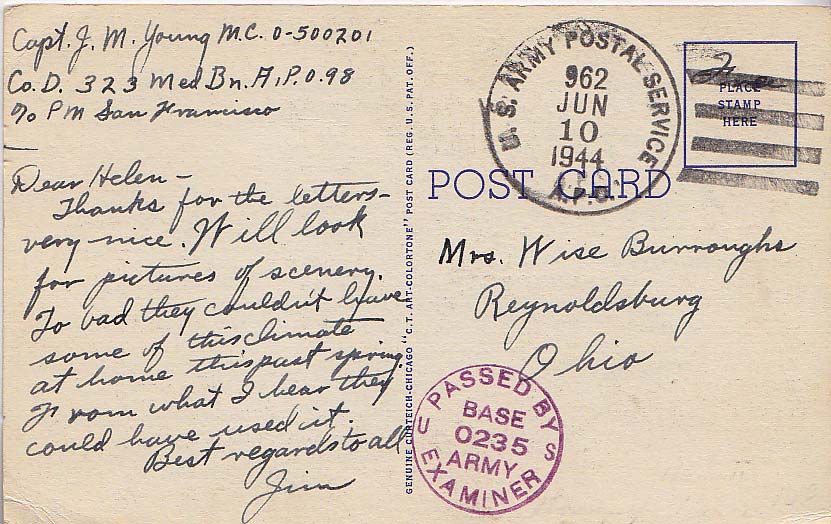 Capt. J. M. Young M.C. O-500201
Co. D. 323 Med Bn. A.P.O. 98
c/o PM San Francisco
Dear Helen-
Thanks for the letters-
very nice. Will look
for pictures of scenery.
To bad they couldn't have
some of this climate
at home this past spring.
From what I hear they
could have used it.
Best regards to all
Jim
GENUINE CURTEICH-CHICAGO "C.T. ART-COLORTONE" POST CARD (REG. U.S. PAT. OFF.)
U. S. ARMY POSTAL SERVICE
962
JUN
10
1944
A.P.O.
Free
PLACE
STAMP
HERE
POST CARD
Mrs. Wise Burroughs
Reynoldsburg
Ohio
PASSED BY
BASE
0235
ARMY
EXAMINER
U S